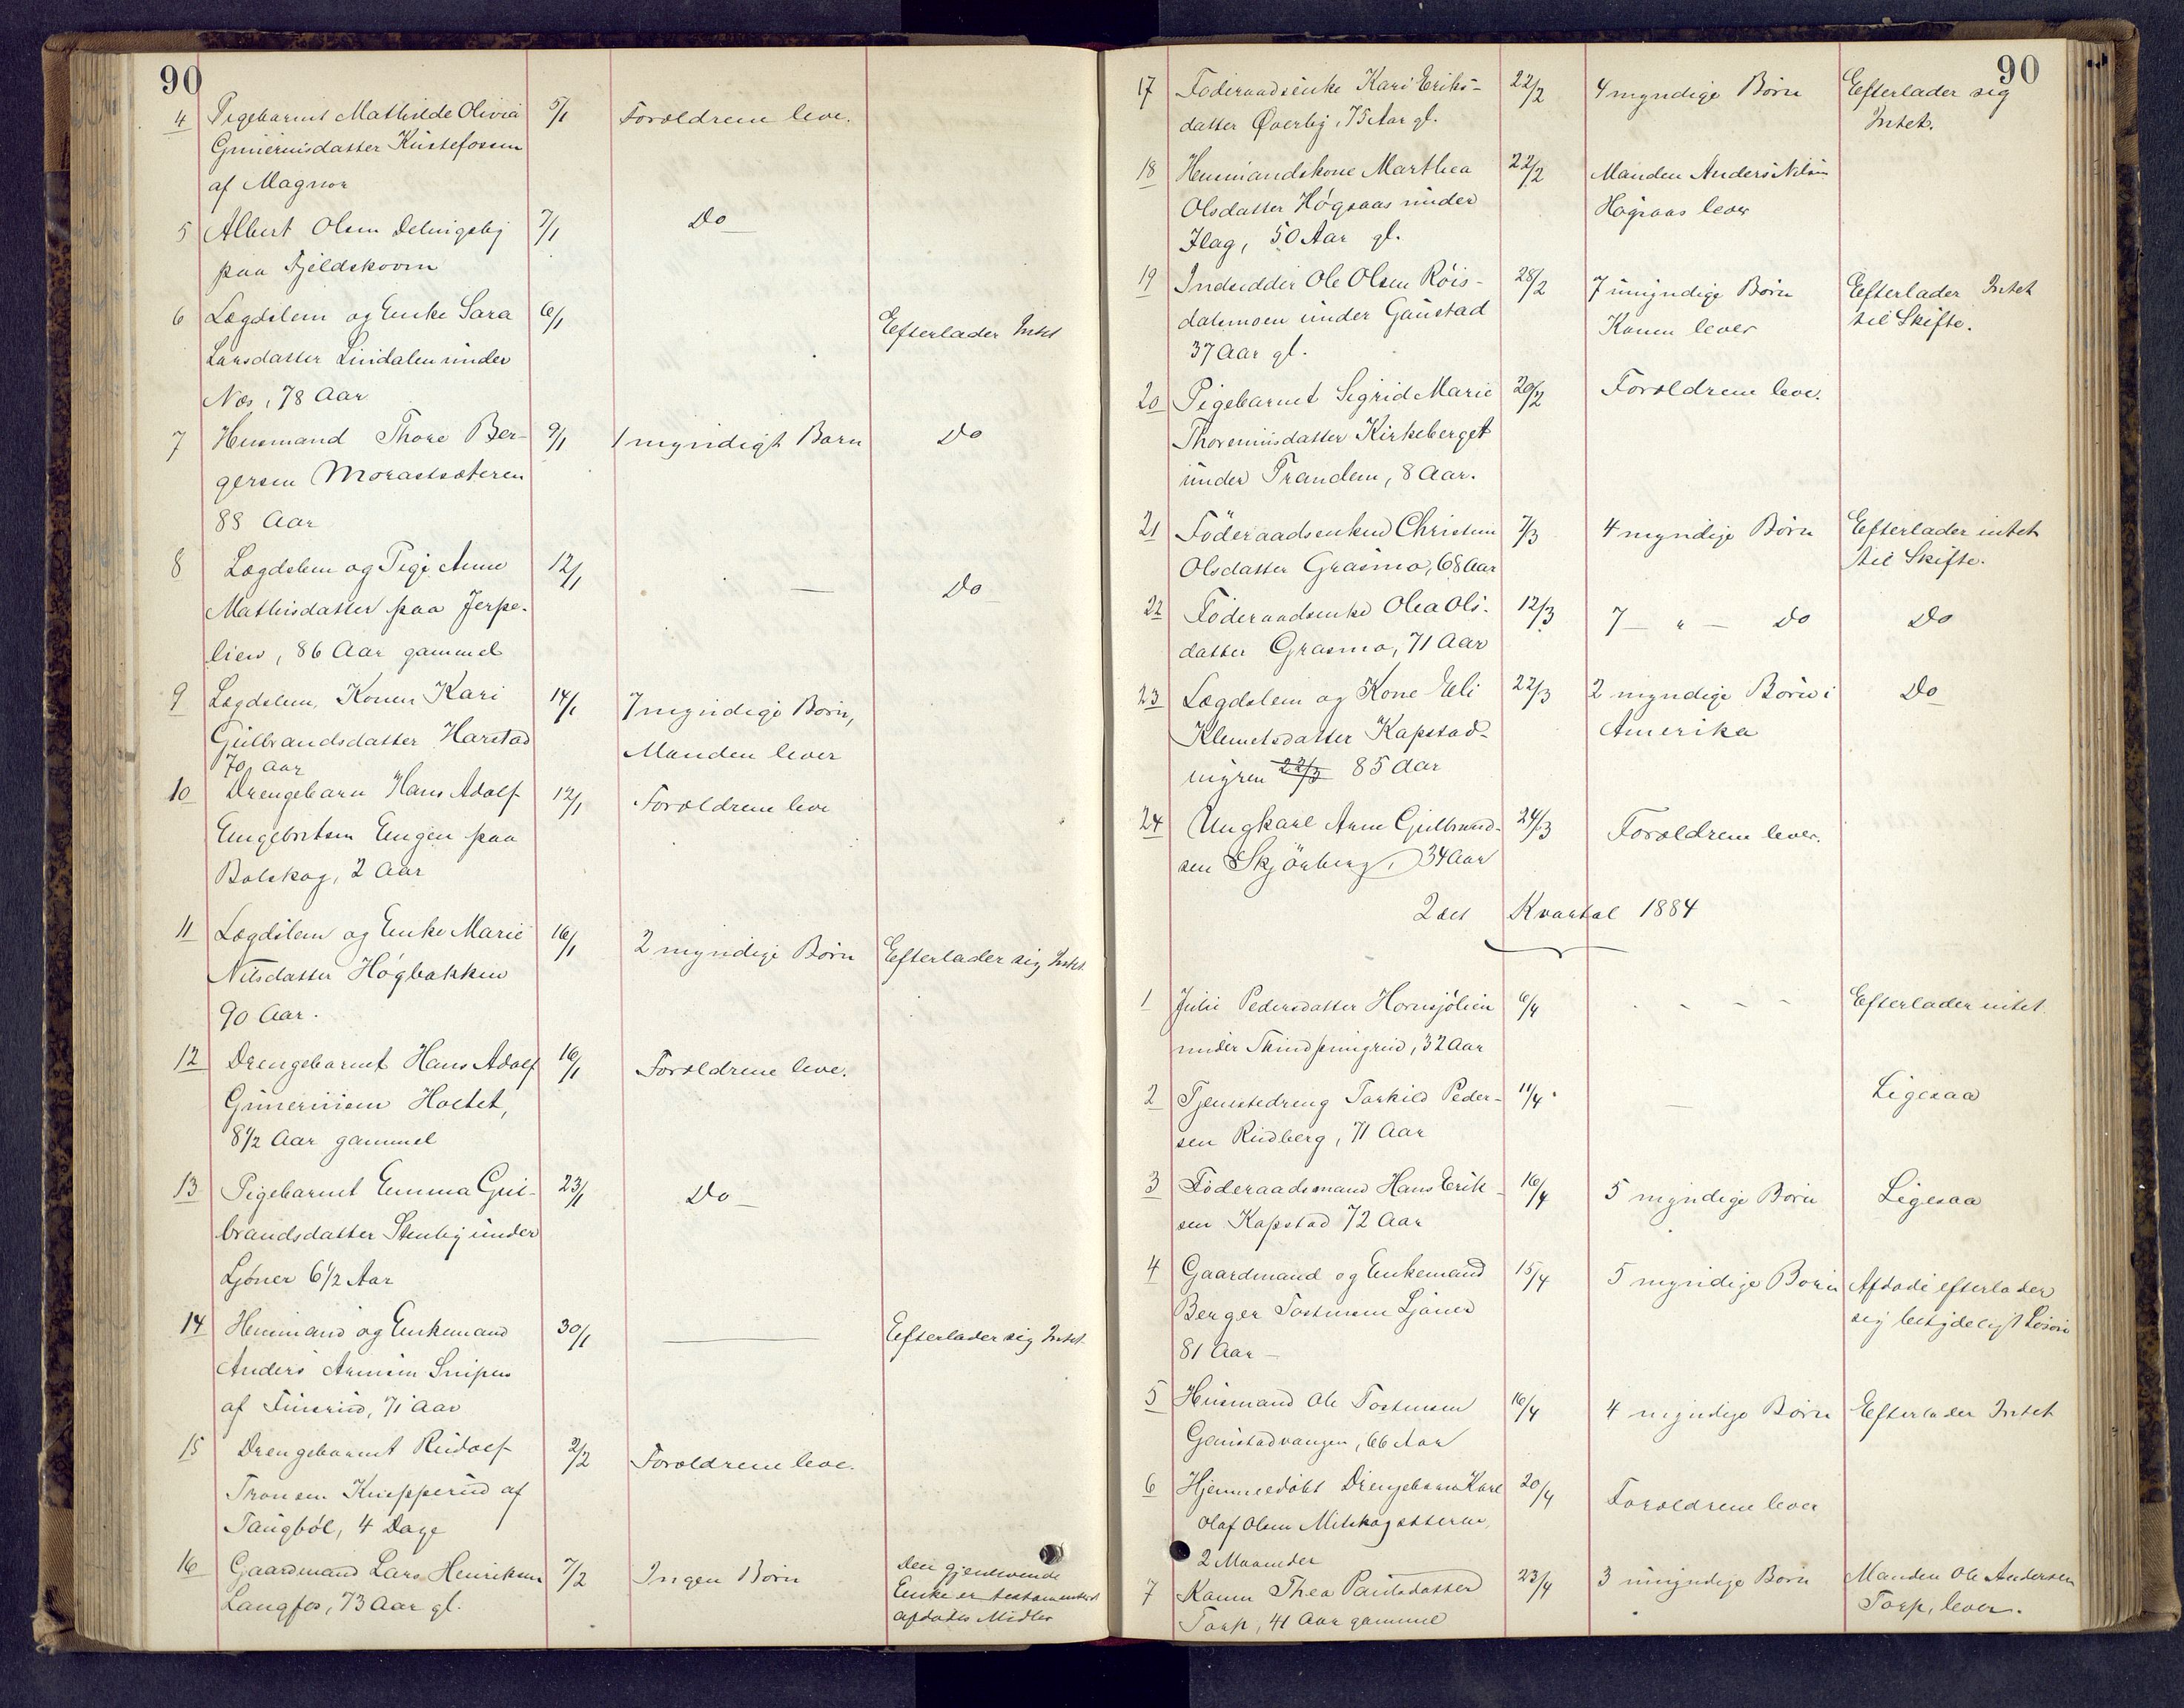 90
4 Pigebarnet Mathilde Olivia 5/1 Forældrene leve.
Gunerusdatter Kustefossen
af Magnor
5 Albert Olsen Delingsby 7/1 Do
paa Fjeldskoven
6 Lægdslem og Enke Sara 6/1 Efterlader Intet
Larsdatter Lindalen under
Næs, 78 Aar
7 Husmand Thore Ber- 9/1 1 myndigt Barn Do
gersen Morastsæteren
88 Aar
8 Lægdslem og Pige Anne 12/1 — Do
Mathisdatter paa Jerpe-
lien, 86 Aar gammel
9 Lægdslem, Konen Kari 14/1 7 myndige Børn,
Gulbrandsdatter Harstad Manden lever
70 Aar
10 Drengebarn Hans Adolf 12/1 Forældrene leve
Engebretsen Engen paa
Bolskog, 2 Aar
11 Lægdslem og Enke Marie 16/1 2 myndige Børn Efterlader sig Intet
Nilsdatter Høgbakken
90 Aar.
12 Drengebarnet Hans Adolf 16/1 Forældrene leve.
Guneriusen Holtet,
8 1/2 Aar gammel
13 Pigebarnet Emma Gul- 23/1 Do
brandsdatter Stenby under
Ljøner 6 1/2 Aar
14 Husmand og Enkemand 30/1 — Efterlader sig Intet
Anders Arnesen Snipen
af Finsrud, 71 Aar
15 Drengebarnet Rudolf 2/2 Forældrene leve.
Tronsen Knapperud af
Taugbøl, 4 Dage
16 Gaardmand Lars Henriksen 7/2 Ingen Børn Den gjenlevende
Langfos, 73 Aar gl. Enke er testamenteret
afdødes Midler
90
17 Føderaadsenke Kari Eriks- 22/2 4 myndige Børn Efterlader sig
datter Øverby, 75 Aar gl. Intet.
18 Husmandskone Marthea 22/2 Manden Anders Nilsen
Olsdatter Høgaas under Høgaas lever
Flag, 50 Aar gl.
19 Indsidder Ole Olsen Røis- 28/2 7 umyndige Børn Efterlader Intet
dalsmoen under Gaustad Konen lever til Skifte.
37 Aar gl.
20 Pigebarnet Sigrid Marie 20/2 Forældrene leve.
Thoreniusdatter Kirkeberget
under Trandem, 8 Aar.
21 Föderaadsenken Christine 7/3 4 myndige Børn Efterlader intet
Olsdatter Grasmo, 68 Aar til Skifte.
22 Föderaadsenke Olea Ols- 12/3 7 — " — Do Do
datter Grasmo, 71 Aar
23 Lægdslem og Kone Eli 22/3 2 myndige Børn i Do
Klemetsdatter Kapstad- Amerika
nygren 22/3 85 Aar
24 Ungkarl Arne Gulbrand- 24/3 Forældrene lever.
sen Skjönberg, 34 Aar
2det Kvartal 1884
1 Julie Pedersdatter Hornsjølien 6/4 - - - - Efterlader intet.
under Skindpungrud, 32 Aar
2 Tjenestedreng Torkild Peder- 11/4 — Ligesaa
sen Rudberg, 71 Aar
3 Föderaadsmand Hans Erik- 16/4 5 myndige Børn Ligesaa
sen Kapstad 72 Aar
4 Gaardmand og Enkemand 15/4 5 myndige Børn Afdøde efterlader
Berger Tostensen Ljöner sig betydeligt Løsøre
81 Aar —
5 Husmand Ole Tostensen 16/4 4 myndige Børn Efterlader Intet
Gaustadvangen, 66 Aar
6 Hjemmedøbt Drengebarn Karl 20/4 Forældrene lever
Olaf Olsen Mitskogsæteren,
2 Maaneder
7 Konen Thea Paulsdatter 23/4 3 umyndige Børn Manden Ole Andersen
Torp, 41 Aar gammel Torp, lever.